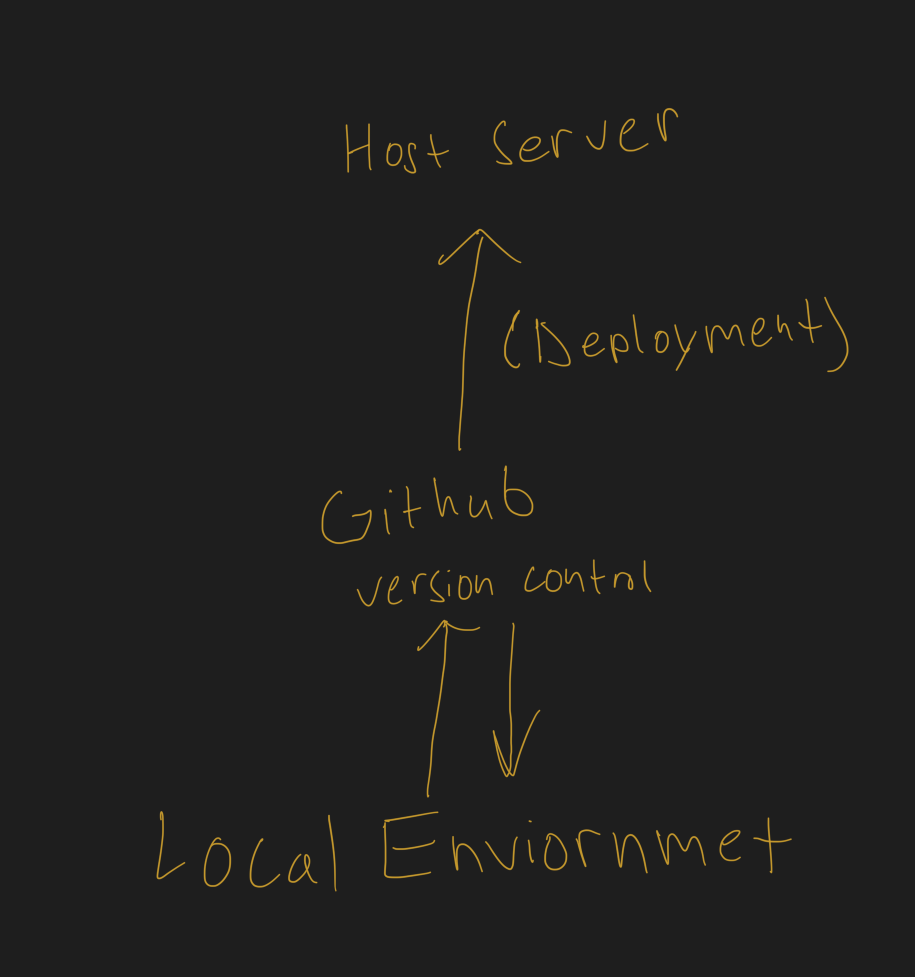 Host Server
(Deployment)
Github
version control
Local Enviornmet